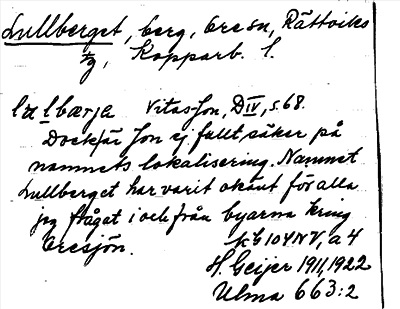 Lullberget, berg, Ore sn, Rättviks
tg, Kopparb. l.
lɑlbærja Vitas-Jon, DIV, s. 68.
Dock är Jon ej fullt säker på
namnets lokalisering. Namnet
Lullberget har varit okänt för alla
jag frågat i och från byarna kring
Oresjön.
kb 104NV, a 4
H. Geijer 1911, 1922
Ulma 663:2